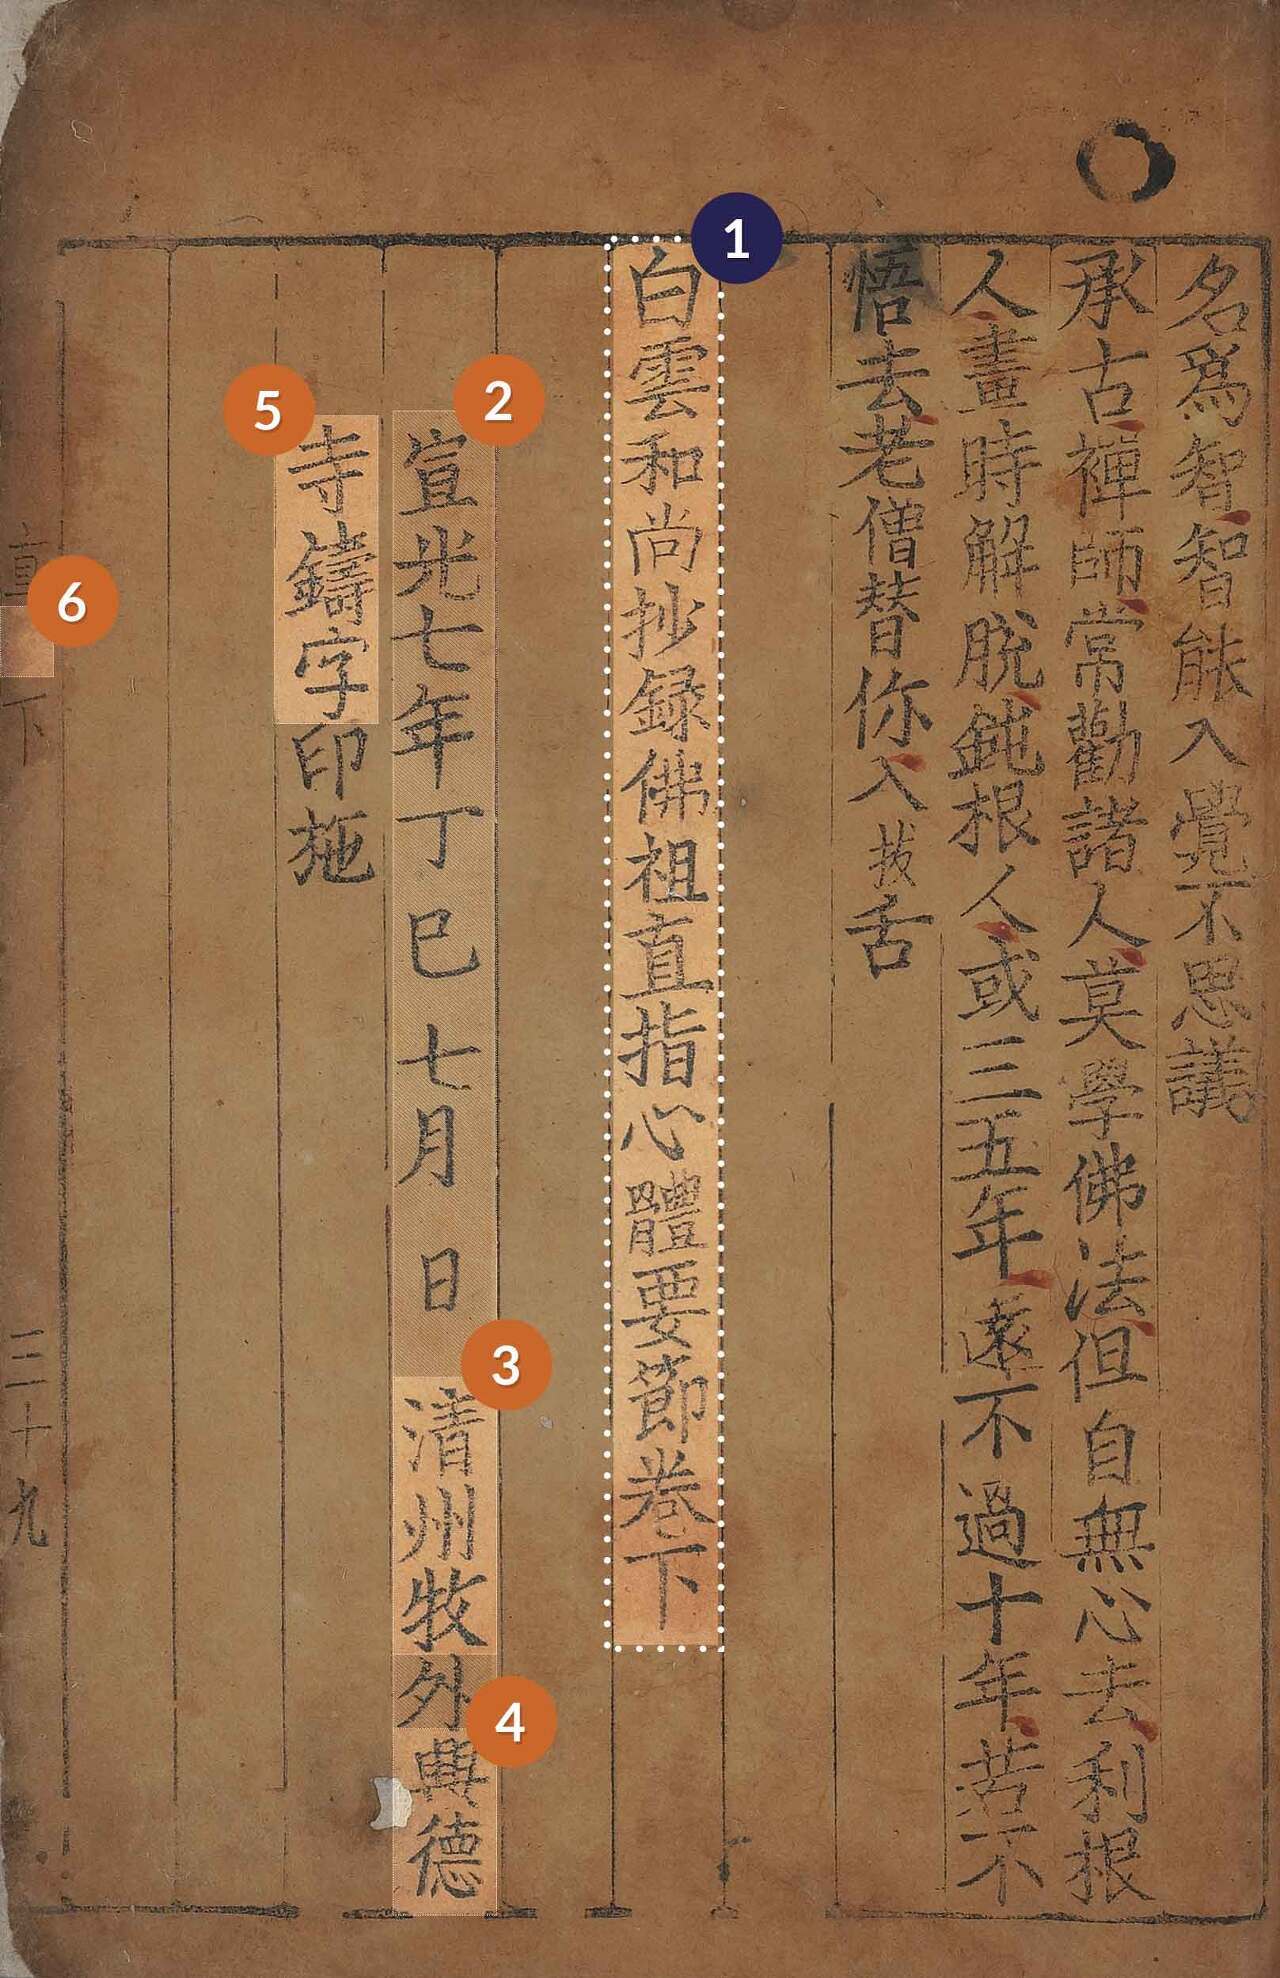 名爲智智能入覺不思議
承古禪師常勸諸人莫學佛法但自無心去利根
人畫時解脫鈍根人或三五年遠不過十年若不
悟去老僧替你入拔舌
白雲和尚抄錄佛祖直指心體要節卷下
宣光七年丁巳七月 日 清州牧外興德
寺鑄字印施
直 下 三十九
1
2
3
4
5
6